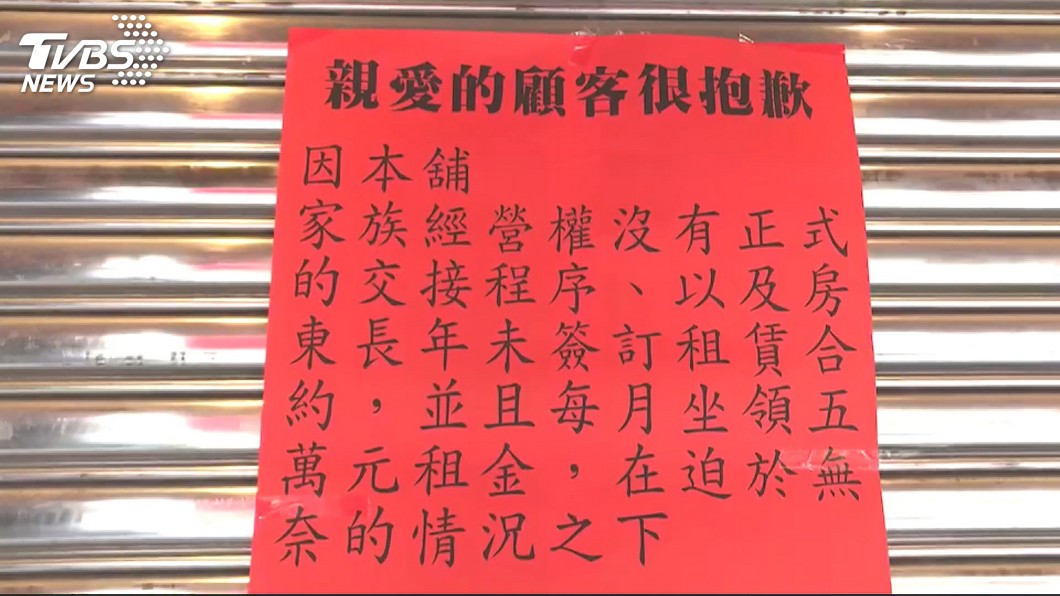 TVBS
NEWS
親愛的顧客很抱歉
因本舖
家族經營權沒有正式
的交接程序、以及房
東長年未簽訂租賃合
約，並且每月坐領五
萬元租金，在迫於無
奈的情況之下